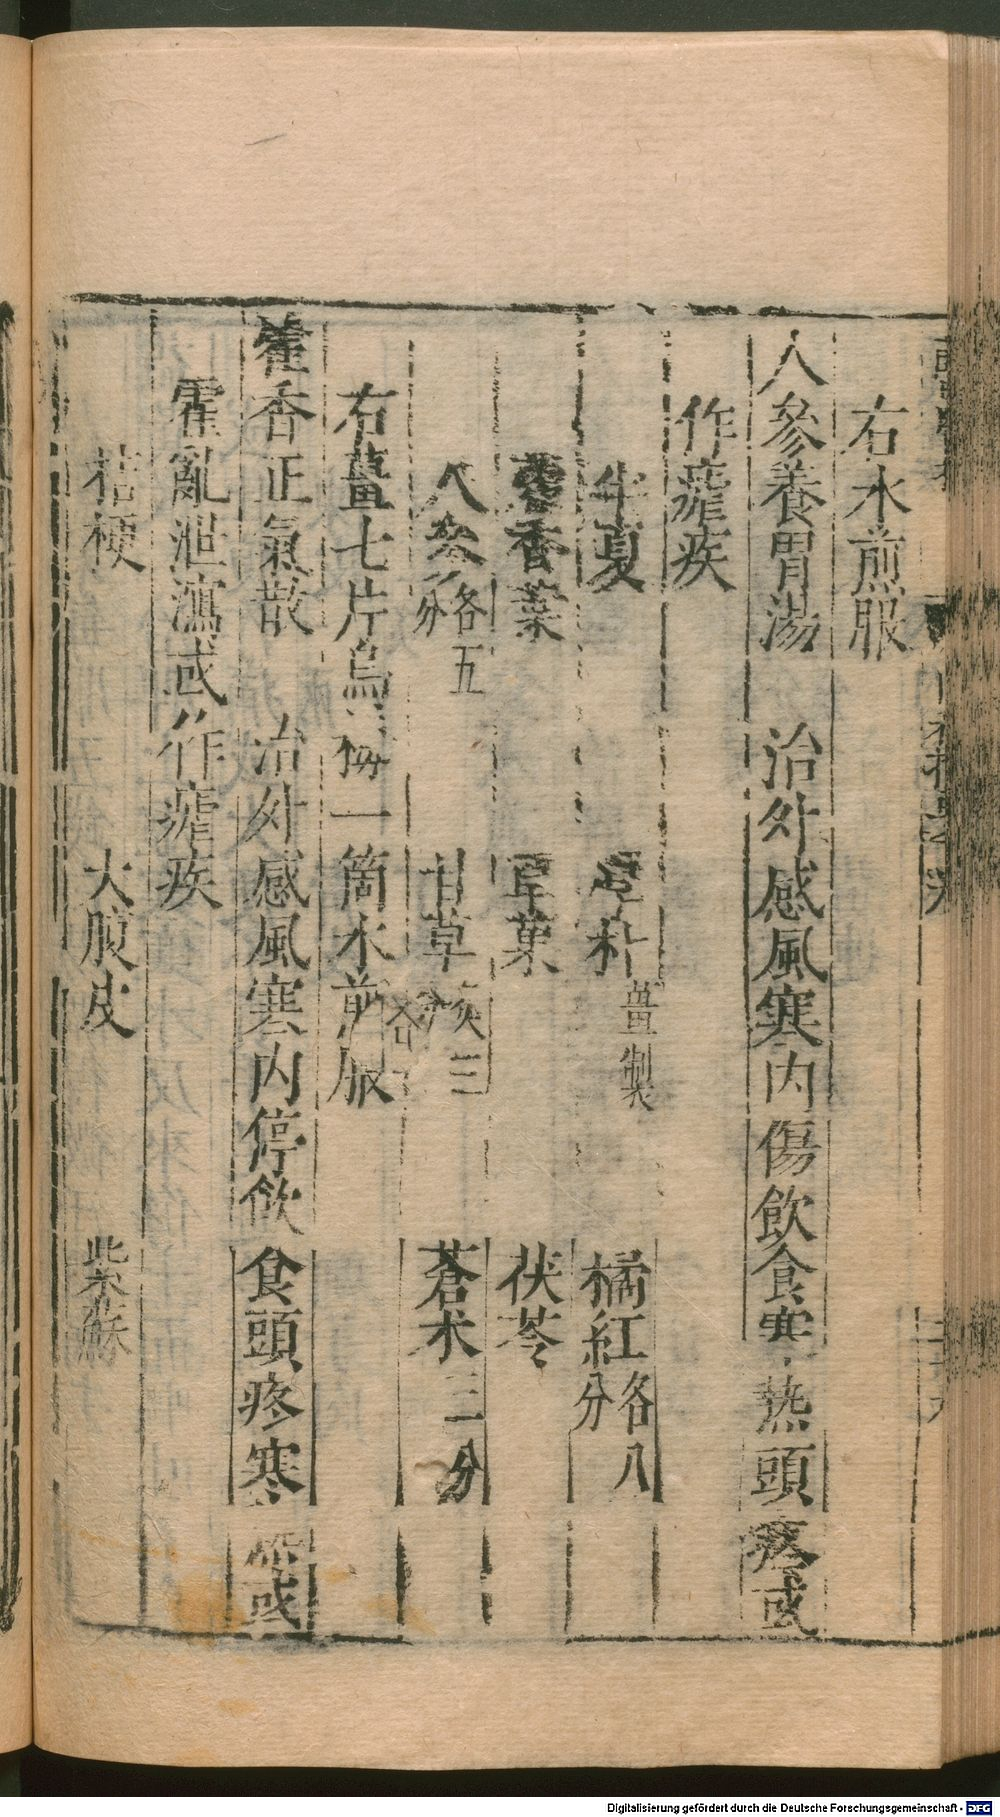 右水煎服
人參養胃湯 治外感風寒內傷飲食寒熱頭疼或
作瘧疾
半夏 厚朴薑製 橘紅各八分
藿香葉 草菓 茯苓
人參各五分 甘草炙三分 蒼朮三分
右薑七片烏梅一箇水煎服
藿香正氣散 治外感風寒內停飲食頭疼寒熱或
霍亂泄瀉或作瘧疾
桔梗 大腹皮 紫蘇
Digitalisierung gefördert durch die Deutsche Forschungsgemeinschaft - DFG